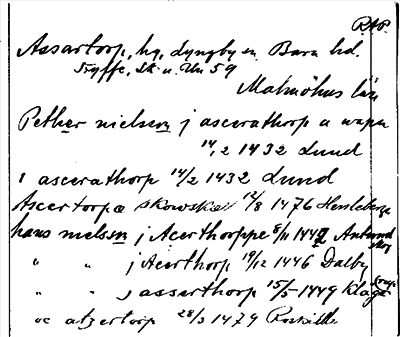 RAP.
Assartorp, hg, Lyngby sn. Bara hd.
Tryffe, Sk u. Un 59
Malmöhus län
Pether nielsen j ascerathorp a wapn
14/2 1432 Lund
i ascerathorp 14/2 1432 Lund
Ascertorpa skowska 12/8 1476 Herrleberga
hans nielsen j Acerthorppe 8/11 1442
" " j Acerthorp 19/12 1446 Dalby
" " j asserthorp 15/5-1449 Klage
oc atzertorp 28/3 1479 Roskilde